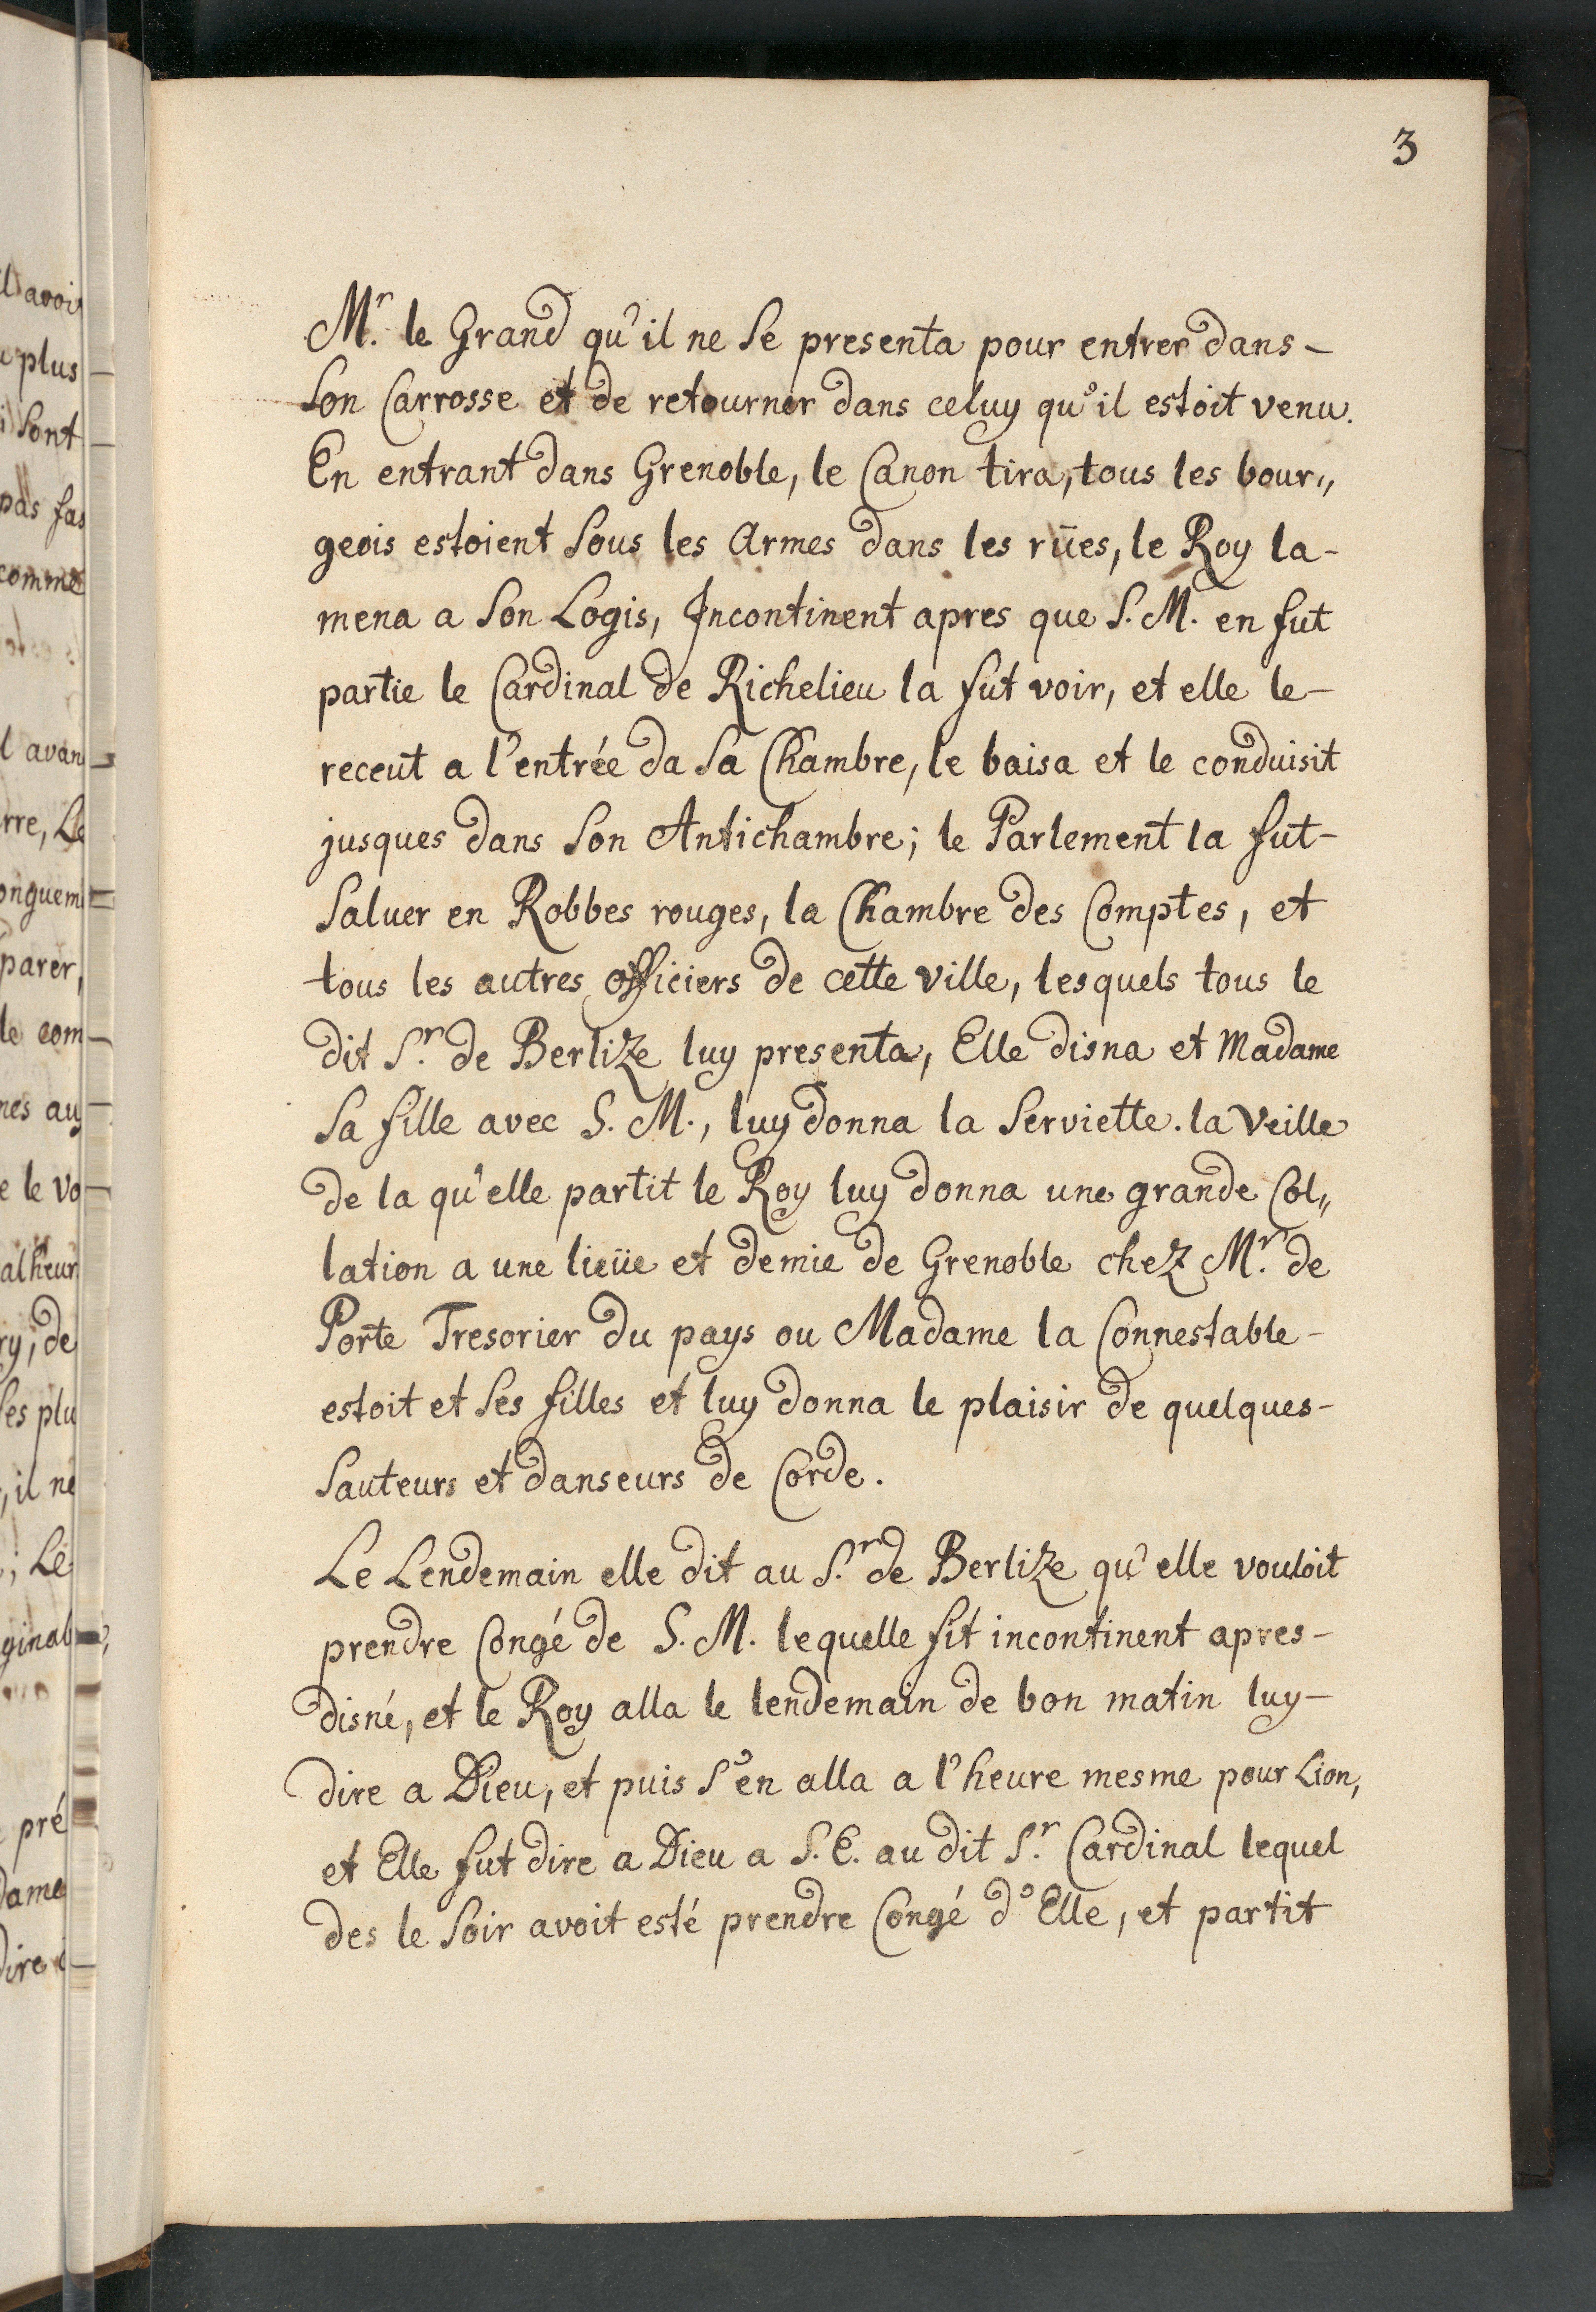 3
Mr. le Grand qu'il ne se presenta pour entrer dans-
son Carrosse et de retourner dans celuy qu'il estoit venu.
En entrant dans Grenoble, le Canon tira, tous les bour„
geois estoient sous les Armes dans les rües, le Roy la-
mena a son Logis, Incontinent apres que S. M. en fut
partie le Cardinal de Richelieu la fut voir, et elle le-
receut a l'entrée da sa Chambre, le baisa et le conduisit
jusques dans son Antichambre; le Parlement la fut-
saluer en Robbes rouges, la Chambre des Comptes, et
tous les autres officiers de cette ville, lesquels tous le
dit Sr. de Berlize luy presenta, Elle disna et Madame
sa fille avec S. M., luy donna la serviette. la veille
de la qu'elle partit le Roy luy donna une grande Col„
lation a une lieüe et demie de Grenoble chez Mr. de
Porte Tresorier du pays ou Madame la Connestable-
estoit et ses filles et luy donna le plaisir de quelques-
sauteurs et danseurs de Corde.
Le Lendemain elle dit au Sr. de Berlize qu'elle vouloit
prendre Congé de S. M. lequelle fit incontinent apres-
disné, et le Roy alla le lendemain de bon matin luy-
dire a Dieu, et puis s'en alla a l'heure mesme pour Lion,
et Elle fut dire a Dieu a S. E. au dit Sr. Cardinal lequel
des le soir avoit esté prendre Congé d'Elle, et partit